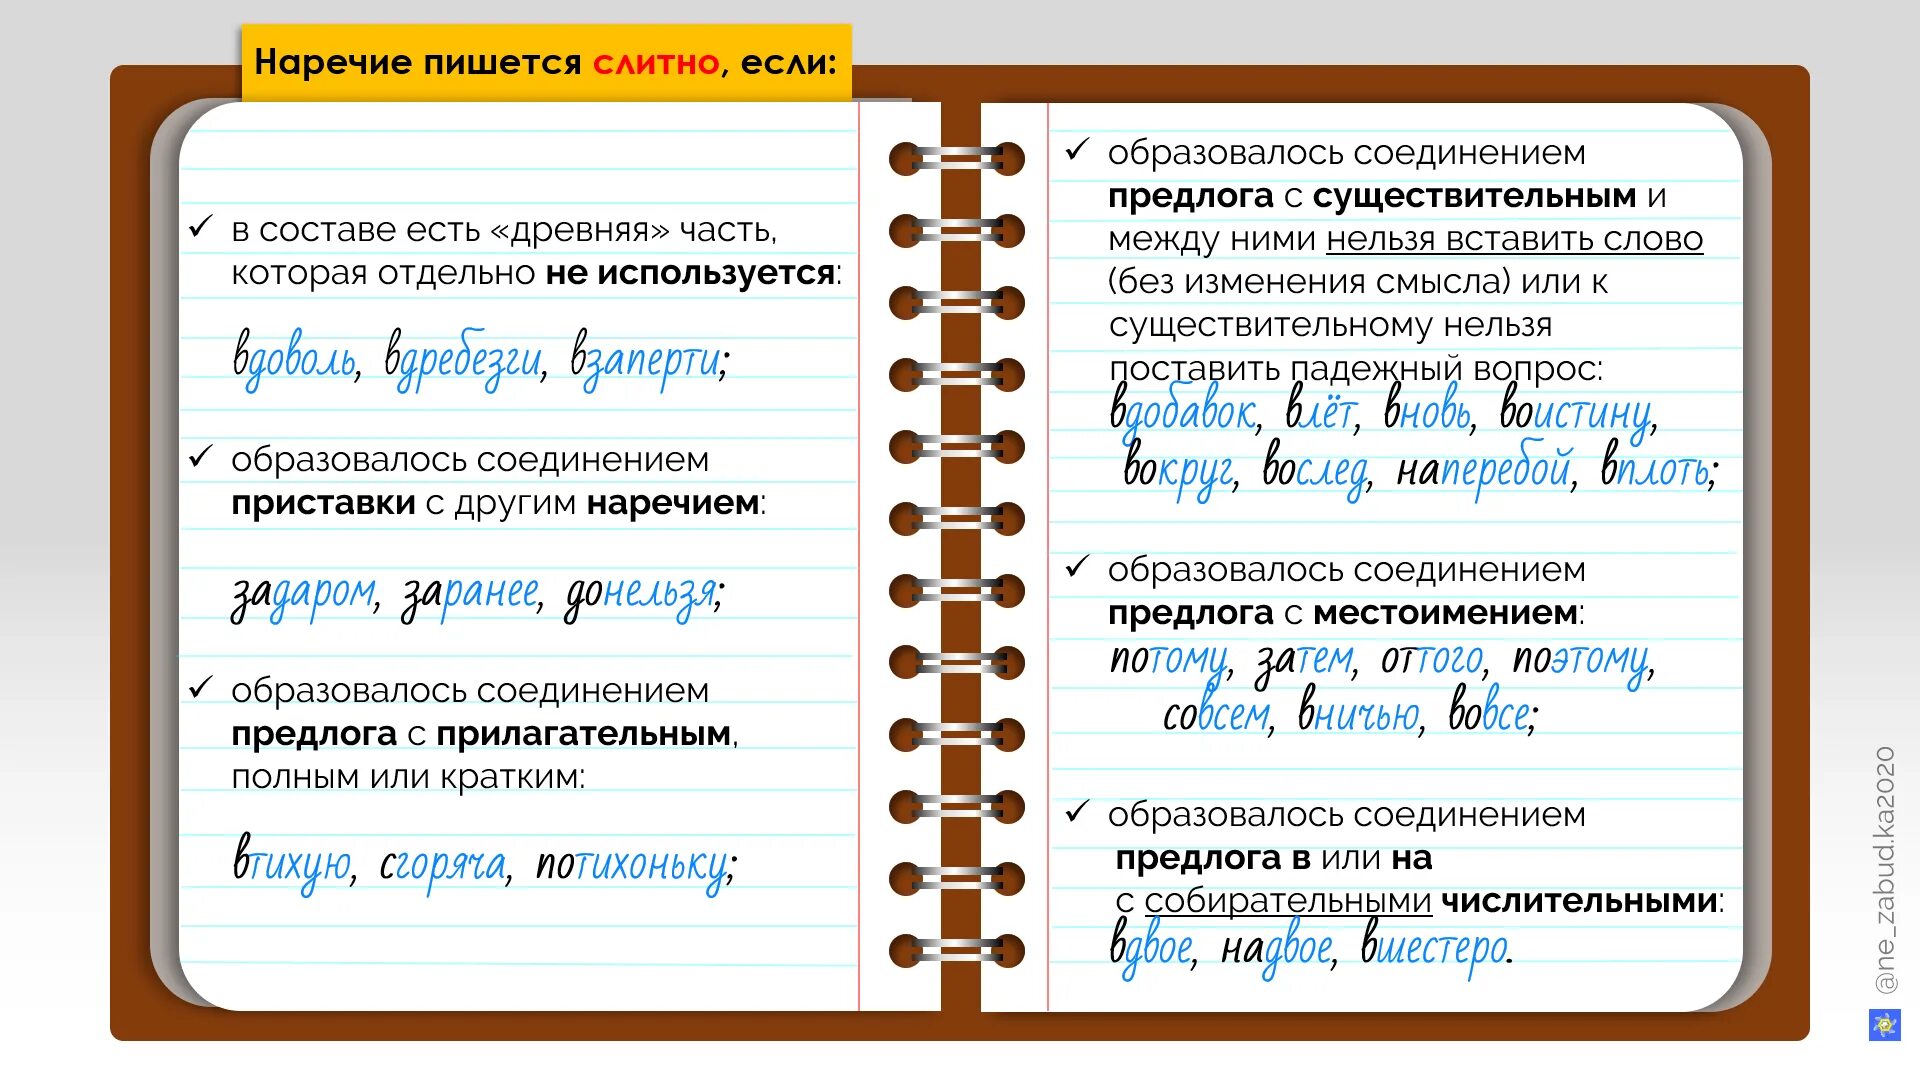 Наречие пишется слитно, если:
✓ в составе есть «древняя» часть,
которая отдельно не используется:
вдоволь, вдребезги, взаперти;
✓ образовалось соединением
приставки с другим наречием:
задаром, заранее, донельзя;
✓ образовалось соединением
предлога с прилагательным,
полным или кратким:
втихую, сгоряча, потихоньку;
✓ образовалось соединением
предлога с существительным и
между ними нельзя вставить слово
(без изменения смысла) или к
существительному нельзя
поставить падежный вопрос:
вдобавок, влёт, вновь, воистину,
вокруг, вослед, наперебой, вплоть;
✓ образовалось соединением
предлога с местоимением:
потому, затем, оттого, поэтому,
совсем, вничью, вовсе;
✓ образовалось соединением
предлога в или на
с собирательными числительными:
вдвое, надвое, вшестеро.
@ne_zabud.ka2020